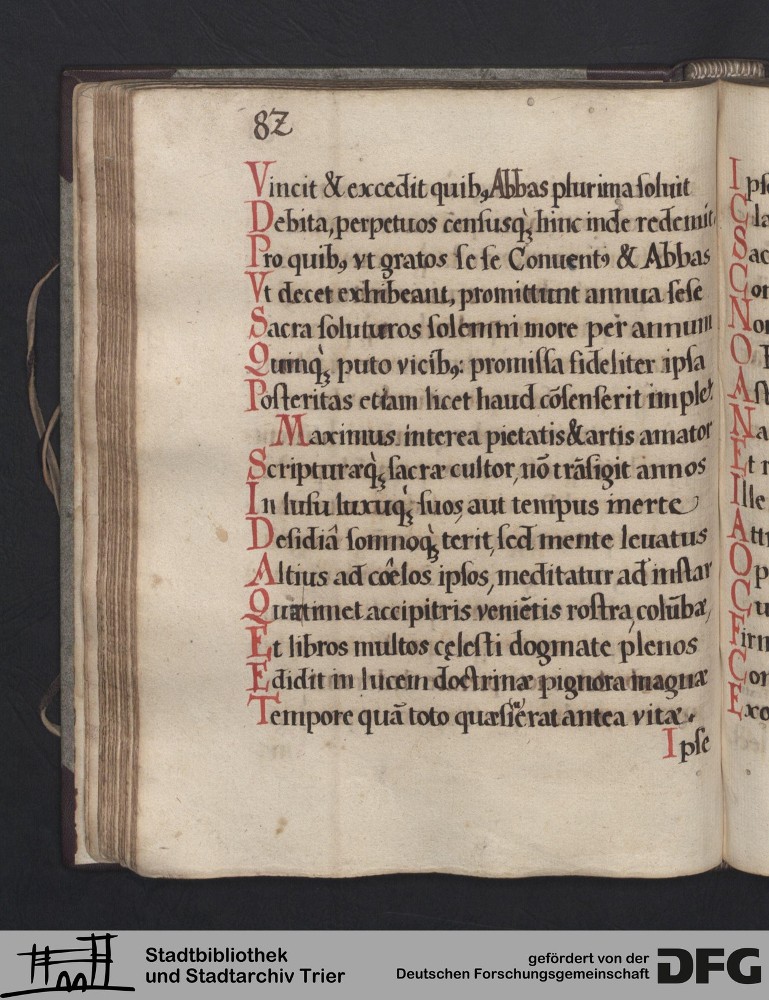 82
Vincit & excedit quibꝰ, Abbas plurima soluit
Debita, perpetuos censusq̀ꝫ hinc inde redemit
Pro quibꝰ vt gratos se se Conuentꝰ & Abbas
Vt decet exhibeant, promittunt annua sese
Sacra soluturos solemni more per annum
Quinq̀ꝫ puto vicibꝰ: promissa fideliter ipsa
Posteritas etiam licet haud cõsenserit implet.
Maximus interea pietatis & artis amator
Scripturæq̀ꝫ sacræ cultor, nõ trãsigit annos
In lusu luxuq̀ꝫ suos, aut tempus inerte
Desidiâ somnoq̀ꝫ terit, sed mente leuatus
Altius ad cœ̂los ipsos, meditatur ad instar
Quæ timet accipitris veniẽtis rostra, colũbæ,
Et libros multos cęlesti dogmate plenos
Edidit in lucem doctrinæ pignora magnæ
Tempore quã toto quæsiuerat antea vitæ.
Ipse
Stadtbibliothek
und Stadtarchiv Trier
gefördert von der
Deutschen Forschungsgemeinschaft
DFG